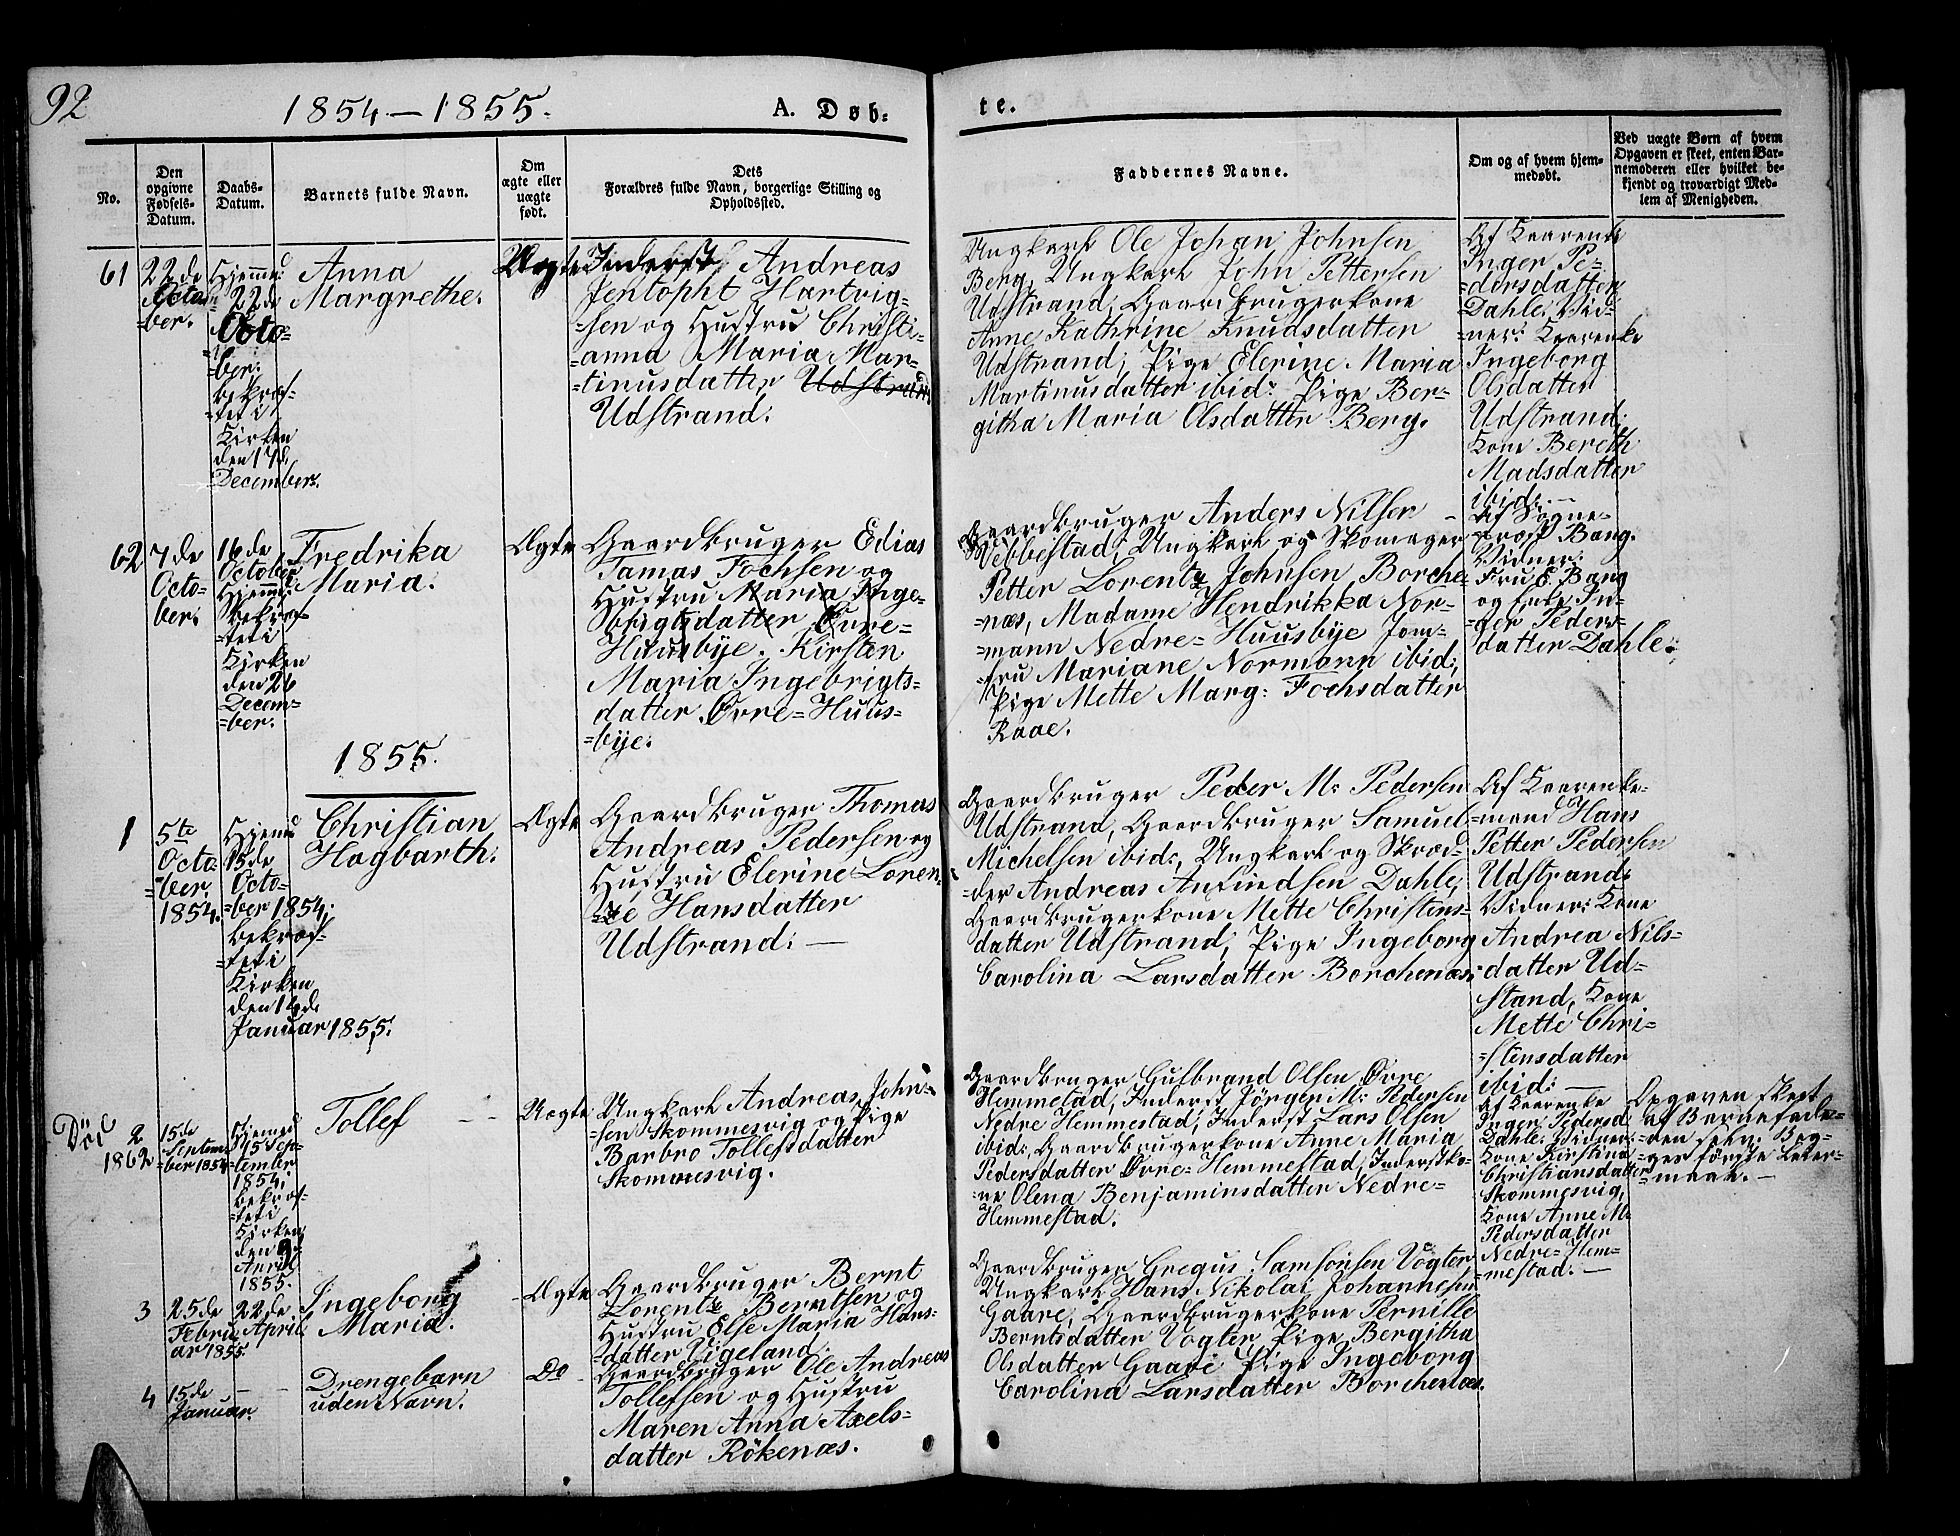 92
1854–1855.
A. Døb-
te.
No.
Den
opgivne
Fødsels-
Datum.
Daabs-
Datum.
Barnets fulde Navn.
Om
ægte eller
uægte
født.
Dets
Forældres fulde Navn, borgerlige Stilling og
Opholdssted.
Faddernes Navne.
Om og af hvem hjem-
medøbt.
Ved uægte Børn af hvem
Opgaven er skeet, enten Bar-
nemoderen eller hvilket be-
kjendt og troværdigt Med-
lem af Menigheden.
61
22de
Octo-
ber.
Hjemme
22de
Octo-
ber.
bekræf-
tet i
Kirken
den 17de
December.
Anna
Margrethe.
Ægte
Inderst, Andreas
Jentopht Hartvig-
sen og Hustru Christi-
anna Maria Mar-
tinusdatter Udstran
Udstrand.
Ungkarl Ole Johan Johnsen
Berg, Ungkarl John Pettersen
Udstrand, Gaardbrugerkone
Anne Kathrine Knudsdatter
Udstrand, Pige Elerine Maria
Martinusdatter ibid: Pige Ber-
githa Maria Olsdatter Berg.
Af Kaarenke
Inger Pe-
dersdatter
Dahle, Vid-
ner: Kaarenke
Ingeborg
Olsdatter
Udstrand,
Kone Bereth
Madsdatter
ibid: —
62
7de
Octo-
ber.
16de
October
Hjemme
Bekræf-
tet i
Kirken
den 26
Decem-
ber.
Fredrika
Maria.
Ægte
Gaardbruger Edias
Tamas Fochsen og
Hustru Maria Inge-
brigtsdatter Øvre-
Huusbye. Kirsten
Maria Ingebrigts-
datter Øvre-Huus-
bye.
Gaardbruger Anders Nilsen
Vebbestad, Ungkarl og Skomager
Petter Lorentz Johnsen Borche-
næs, Madame Hendrikka Nor-
mann Nedre-Huusbye Jom-
fru Mariane Normann ibid:,
Pige Mette Marg: Fochsdatter
Raae.
Af Sogne-
prost Bang.
Vidner:
Fru E. Bang
og Enke In-
ger Peders-
datter Dahle.
1855.
1
5te
Octo-
ber
1854.
Hjemme
15de
Octo-
ber 1854.
bekræf-
tet i
Kirken
den 14de
Januar 1855.
Christian
Hagbarth.
Ægte
Gaardbruger Thomas
Andreas Pedersen og
Hustru Elerine Loren-
tze Hansdatter
Udstrand. —
Gaardbruger Peder M. Pedersen
Udstrand, Gaardbruger Samuel
Michelsen ibid:, Ungkarl og Skræd-
der Andreas Anfindsen Dahle,
Gaardbrugerkone Mette Christens-
datter Udstrand, Pige Ingeborg
Carolina Larsdatter Borchenæs.
Af Kaarenke-
mand Hans
Petter Pedersen
Udstrand.
Vidner: Kone
Andrea Nils-
datter Ud-
stand, Kone
Mette Chri-
stensdatter
ibid: —
Død
1862
2
15de
Septem-
ber 1854
Hjemme
15 Sep-
tember
1854.
bekræf-
tet i
Kirken
den 9de
April
1855.
Tollef
Uægte
Ungkarl Andreas John-
sen Skommesvig og Pige
Barbro Tollefsdatter
Skommesvig.
Gaardbruger Gulbrand Olsen Øvre
Hemmestad, Inderst Jørgen M. Pedersen
Nedre Hemmestad, Inderst Lars Olsen
ibid:, Gaardbrugerkone Anne Maria
Pedersdatter Øvre-Hemmestad, Inderstko-
ne Olena Benjaminsdatter Nedre-
Hemmestad.
Af Kaarenke
Inger Pedersd
Dahle. Vidner:
Kone Kirstina
Christiansdatter
Skommesvig,
Kone Anne M.
Pedersdatter
Nedre-Hem-
mestad. —
Opgaven skeet
af Barnefade-
ren selv. Beg-
ges første Leier-
maal. —
3
25de
Febru-
ar 1855.
22de
April
Ingeborg
Maria.
Ægte
Gaardbruger Bernt
Lorentz Berntsen og
Hustru Else Maria Hans-
datter Vigeland.
Gaardbruger Gregus Samsonsen Vogter
Ungkarl Hans Nikolai Johannesen
Gaare, Gaardbrugerkone Pernille
Berntsdatter Vogter, Pige Bergitha
Olsdatter Gaare Pige Ingeborg
Carolina Larsdatter Borchenæs.
4
15de
Januar.
Drengebarn
uden Navn.
Do
Gaardbruger Ole Andreas
Tollefsen og Hustru
Maren Anna Axels-
datter Rökenæs.